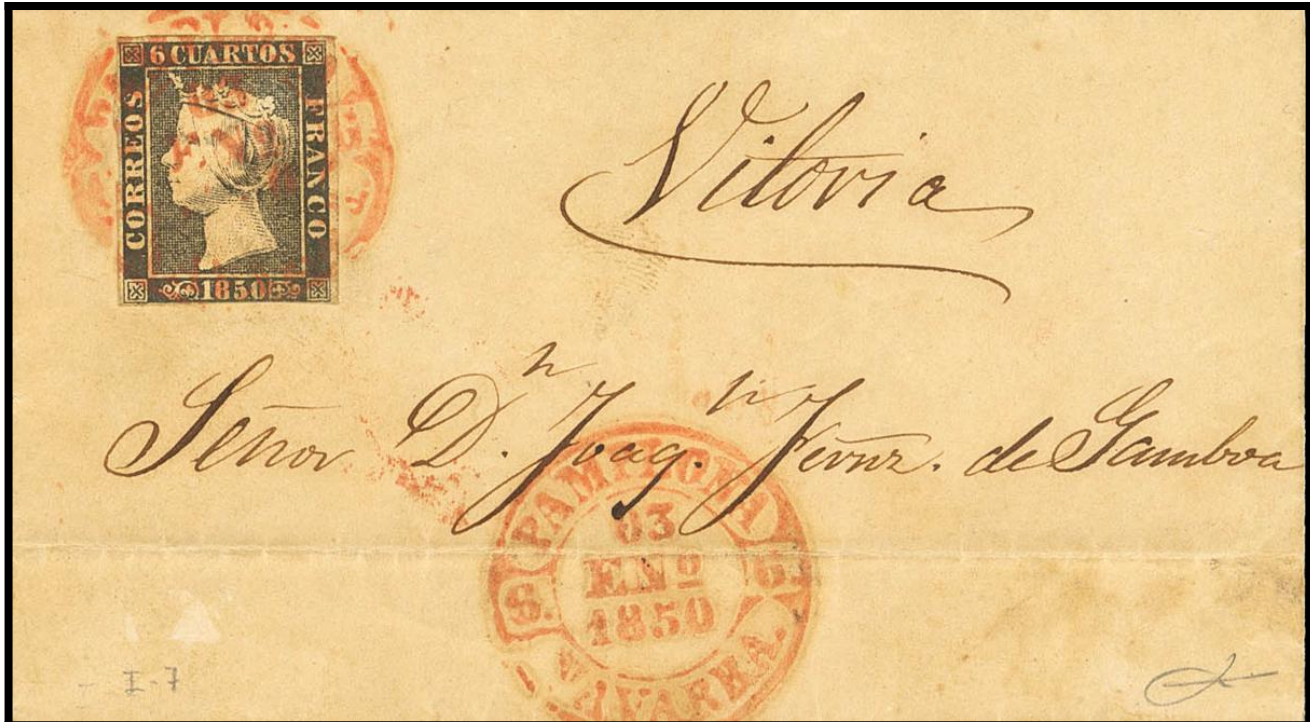 6 CUARTOS
CORREOS
FRANCO
1850
Vitoria
Señor D.n Joaq.n Fernz. de Gamboa
PAMPLONA
S.
03
ENº
1850
6.
NAVARRA.
I-7